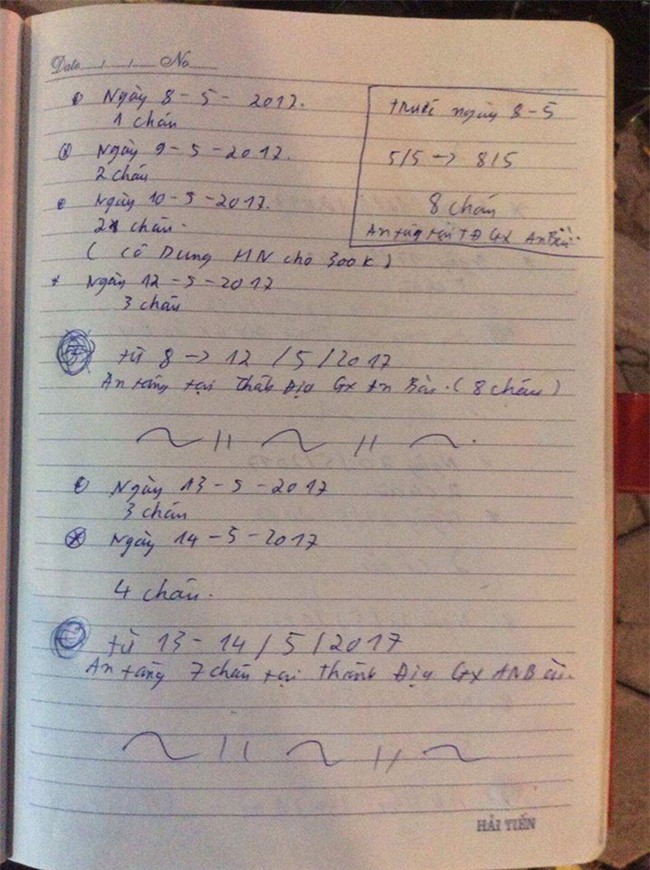 Date / / No
Ngày 8-5-2017.
1 cháu
Ngày 9-5-2017.
2 cháu
Ngày 10-5-2017.
2 cháu.
( cô Dung HN cho 300K )
+ Ngày 12-5-2017
3 cháu
trước ngày 8-5
5/5 -> 8/5
8 cháu
An táng tại TĐ GX An Bài
từ 8 -> 12 / 5 / 2017
An táng tại Thánh Địa Gx An Bài. ( 8 cháu )
Ngày 13-5-2017
3 cháu
Ngày 14-5-2017
4 cháu.
từ 13-14 / 5 / 2017
An táng 7 cháu tại Thánh Địa Gx AN Bài.
HẢI TIẾN